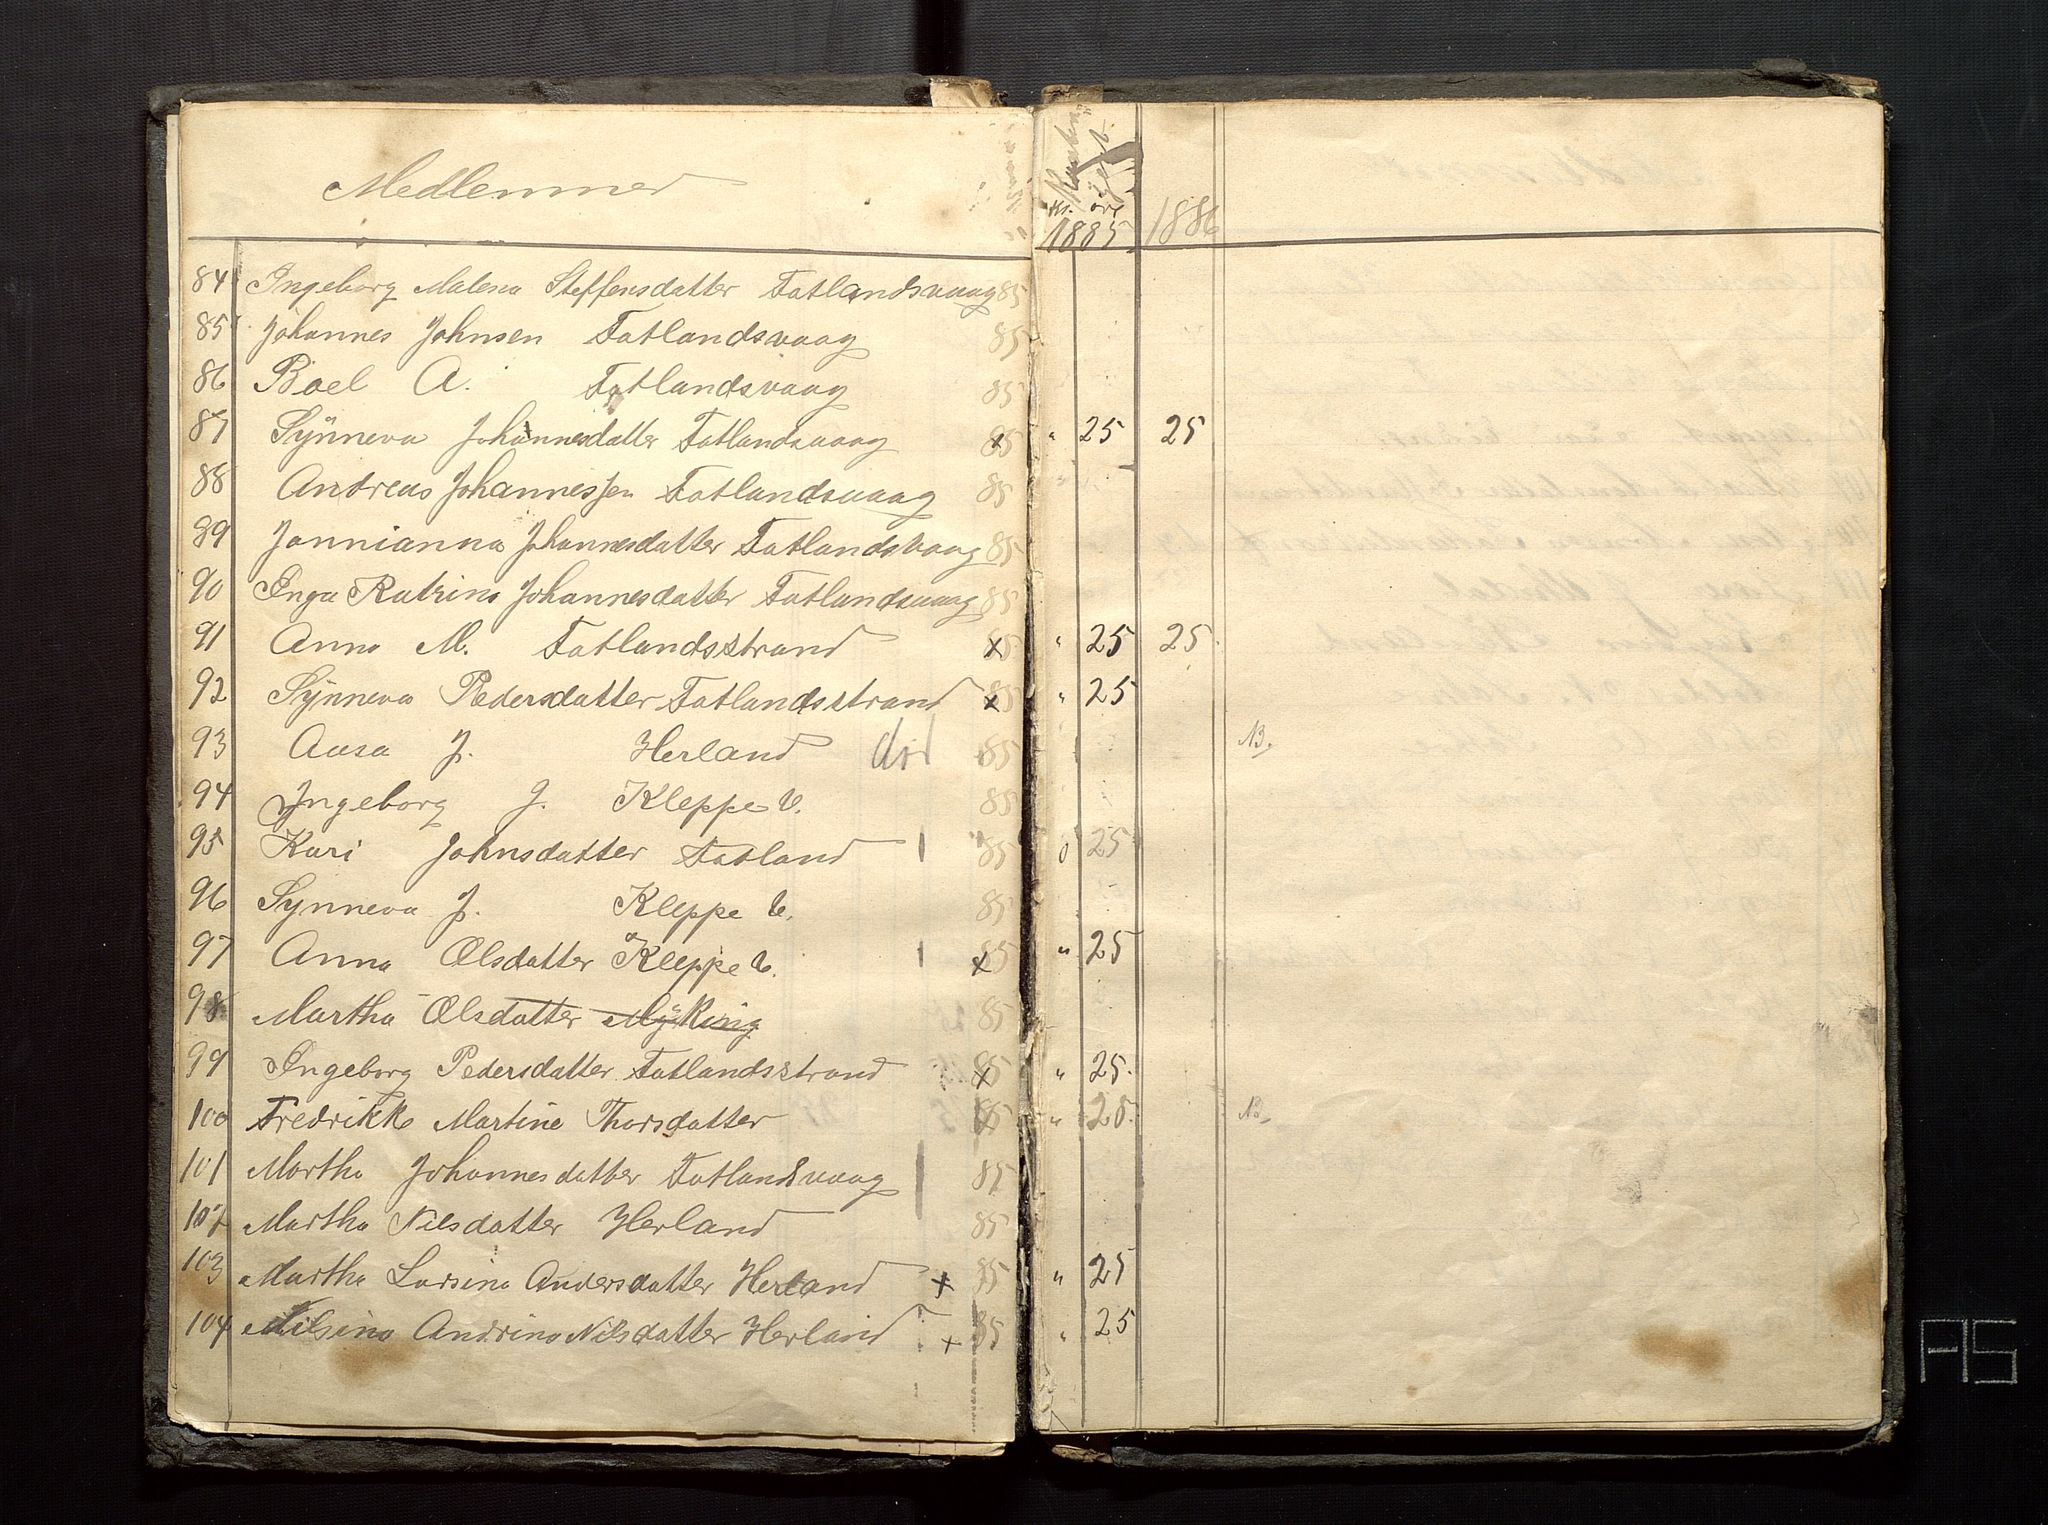 Medlemmer
Kr. øre
1885 1886
84 Ingeborg Malena Steffensdatter Fatlandsvaag 85
85 Johannes Johnsen Fatlandsvaag 85
86 Boel A. Fatlandsvaag 85
87 Synneva Johannesdatter Fatlandsvaag x 85 " 25 25
88 Andreas Johannesen Fatlandsvaag 85
89 Jannianna Johannesdatter Fatlandsvaag 85
90 Inga Katrina Johannesdatter Fatlandsvaag 85
91 Anna M. Fatlandsstrand x 85 " 25 25
92 Synneva Pedersdatter Fatlandsstrand x 85 " 25
93 Aasa J. Herland död 85 NB.
94 Ingeborg J. Kleppe V. 85
95 Kari Johnsdatter Fatland 85 0 25
96 Synneva J. Kleppe V. 85
97 Anna Olsdatter Kleppe V. x 85 " 25
98 Martha Olsdatter Myking 85
99 Ingeborg Pedersdatter Fatlandsstrand x 85 " 25
100 Fredrikke Martine Thorsdatter x 85 " 25 NB.
101 Martha Johannesdatter Fatlandsvaag 85
102 Martha Nilsdatter Herland 85
103 Martha Larsina Andersdatter Herland x 85 " 25
104 Nilsina Andrina Nilsdatter Herland x 85 " 25
AS